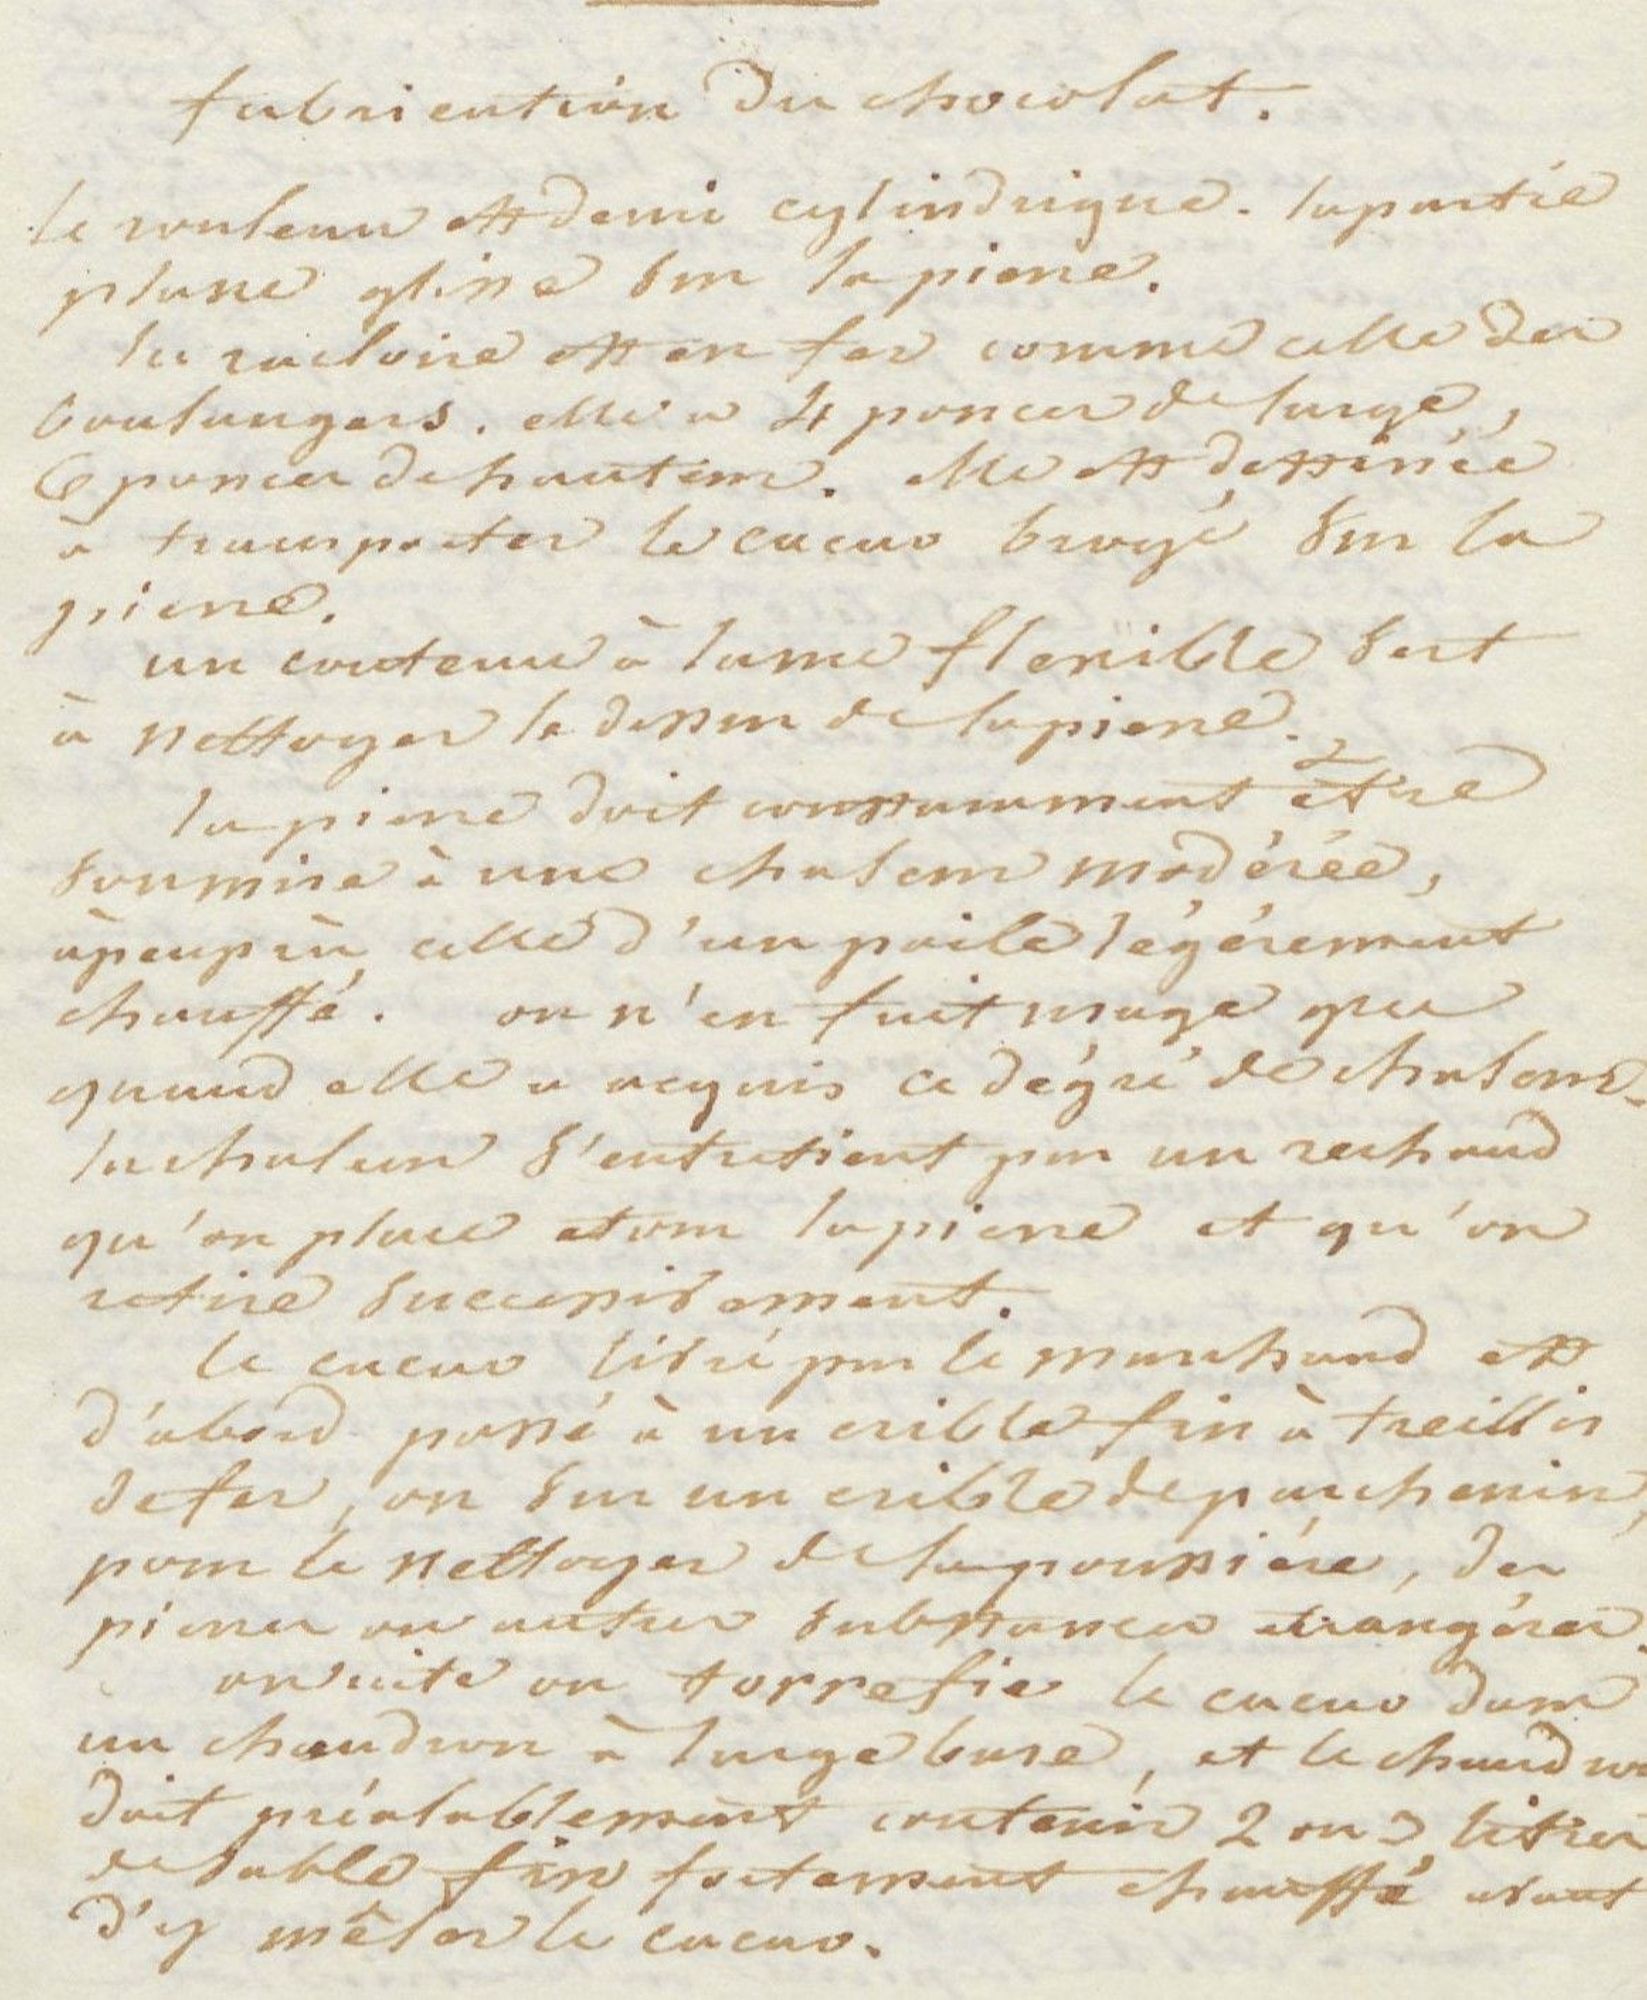 fabrication du chocolat.
le rouleau est demi cylindrique. la partie
plane glisse sur la pierre.
la racloire est en fer comme celle des
boulangers. elle a 4 pouces de large,
6 pouces de hauteur. elle est destinée
à transporter le cacao broyé sur la
pierre.
un couteau à lame flexible sert
à nettoyer le dessus de la pierre.
la pierre doit constamment etre
soumise à une chaleur modérée,
àpeuprès celle d'un poile légérement
chauffé. on n'en fait usage que
quand elle a acquis ce dégré de chaleur.
la chaleur s'entretient par un rechaud
qu'on place sous la pierre et qu'on
retire successivement.
le cacao livré par le marchand est
d'abord passé à un crible fin à treillis
de fer, ou sur un crible de parchemin,
pour le nettoyer de la poussiére, des
pierres ou autres substances etrangéres.
ensuite on torrefie le cacao dans
un chaudron à large base, et le chaudron
doit préalablement contenir 2 ou 3 litres
de sable fin fortement chauffé avant
d'y mêler le cacao.